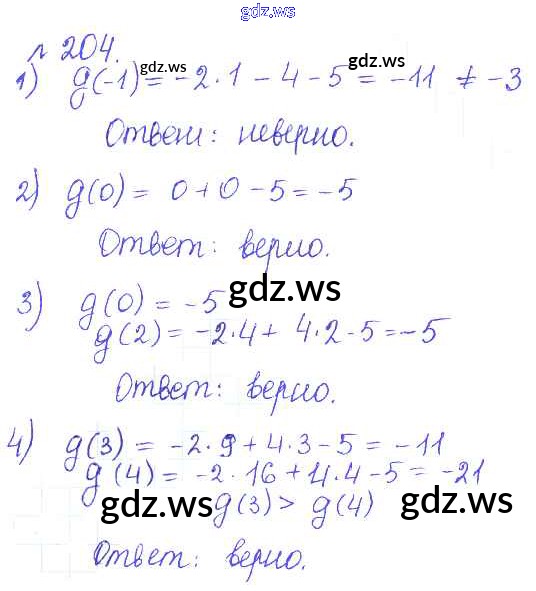 gdz.ws
№ 204.
1) g(-1) = -2·1 - 4 - 5 = -11 ≠ -3
gdz.ws gdz.ws
Ответ: неверно.
2) g(0) = 0+0-5 = -5
Ответ: верно.
gdz.ws
3) g(0) = -5
g(2) = -2·4 + 4·2-5 = -5
Ответ: верно.
4) g(3) = -2·9+4·3-5 = -11
g(4) = -2·16+4·4-5 = -21
gdz.ws g(3) > g(4) gdz.ws
Ответ: верно.